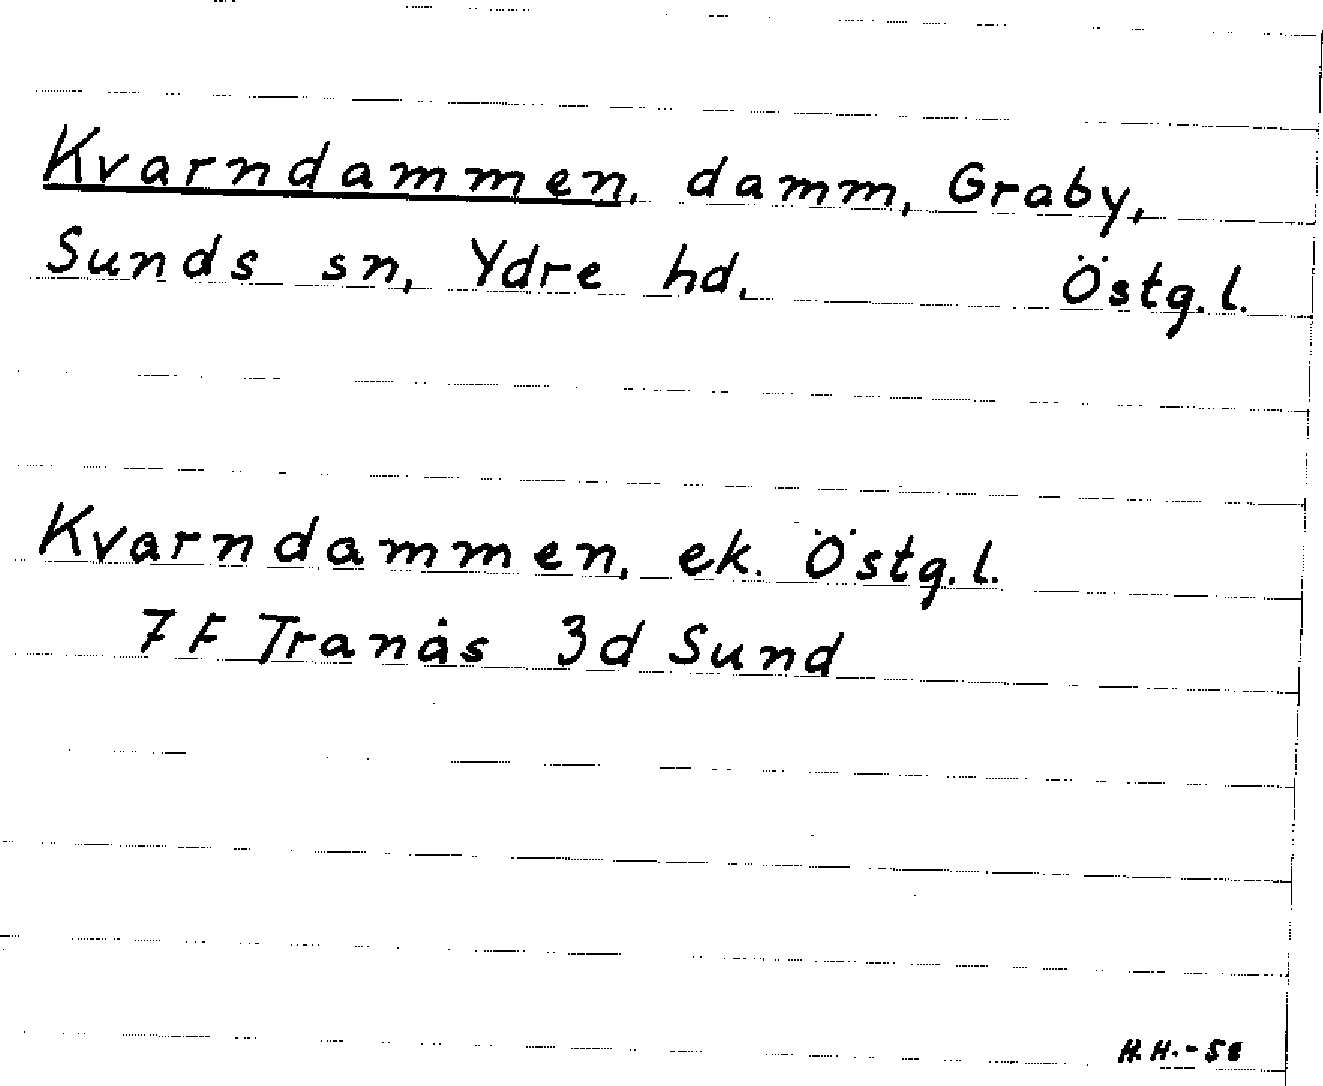 Kvarndammen, damm, Graby,
Sunds sn, Ydre hd. Östg.l.
Kvarndammen, ek. Östg.l.
7 F Tranås 3d Sund
H.H.-58